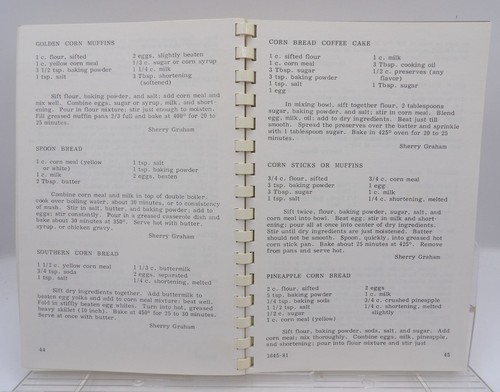 GOLDEN CORN MUFFINS
1 c. flour, sifted
1 c. yellow corn meal
1 1/2 tsp. baking powder
1 tsp. salt
2 eggs, slightly beaten
1/3 c. sugar or corn syrup
1 1/4 c. milk
2 Tbsp. shortening
(softened)
Sift flour, baking powder, and salt; add corn meal and
mix well. Combine eggs, sugar or syrup, milk, and short-
ening. Pour in flour mixture; stir just enough to moisten.
Fill greased muffin pans 2/3 full and bake at 400° for 20 to
25 minutes.
Sherry Graham
SPOON BREAD
1 c. corn meal (yellow
or white)
1 c. milk
2 Tbsp. butter
1 tsp. salt
1 tsp. baking powder
2 eggs, beaten
Combine corn meal and milk in top of double boiler;
cook over boiling water, about 30 minutes, or to consistency
of mush. Stir in salt, butter and baking powder; add to
eggs; stir constantly. Pour in a greased casserole dish and
bake about 50 minutes at 350°. Serve hot with butter,
syrup, or chicken gravy.
Sherry Graham
SOUTHERN CORN BREAD
1 1/2 c. yellow corn meal
3/4 tsp. soda
1 tsp. salt
1 1/3 c. buttermilk
2 eggs, separated
1/4 c. shortening, melted
Sift dry ingredients together. Add buttermilk to
beaten egg yolks and add to corn meal mixture; beat well.
Fold in stiffly beaten egg whites. Turn into hot, greased
heavy skillet (10 inch). Bake at 450° for 25 to 30 minutes.
Serve at once with butter.
Sherry Graham
44
CORN BREAD COFFEE CAKE
1 c. sifted flour
1 c. corn meal
3 Tbsp. sugar
3 tsp. baking powder
1 tsp. salt
1 egg
1 c. milk
3 Tbsp. cooking oil
1/2 c. preserves (any
flavor)
1 Tbsp. sugar
In mixing bowl, sift together flour, 2 tablespoons
sugar, baking powder, and salt; stir in corn meal. Blend
egg, milk, oil; add to dry ingredients. Beat just till
smooth. Spread the preserves over the batter and sprinkle
with 1 tablespoon sugar. Bake in 425° oven for 20 to 35
minutes.
Sherry Graham
CORN STICKS OR MUFFINS
3/4 c. flour, sifted
3 tsp. baking powder
3 Tbsp. sugar
1 tsp. salt
3/4 c. corn meal
1 egg
1 c. milk
1/4 c. shortening, melted
Sift twice, flour, baking powder, sugar, salt, and
corn meal into bowl. Beat egg; stir in milk and short-
ening; pour all at once into center of dry ingredients.
Stir until dry ingredients are just moistened. Batter
should not be smooth. Spoon, quickly, into greased hot
corn stick pan. Bake about 25 minutes at 425°. Remove
from pans and serve hot.
Sherry Graham
PINEAPPLE CORN BREAD
2 c. flour, sifted
1 tsp. baking powder
1/4 tsp. baking soda
1 1/2 tsp. salt
1/2 c. sugar
1 c. corn meal (yellow)
2 eggs
1 c. milk
3/4 c. crushed pineapple
1/4 c. shortening, melted
slightly
Sift flour, baking powder, soda, salt, and sugar. Add
corn meal; mix thoroughly. Combine eggs, milk, pineapple,
and shortening; pour into flour mixture and stir just
1645-81
45